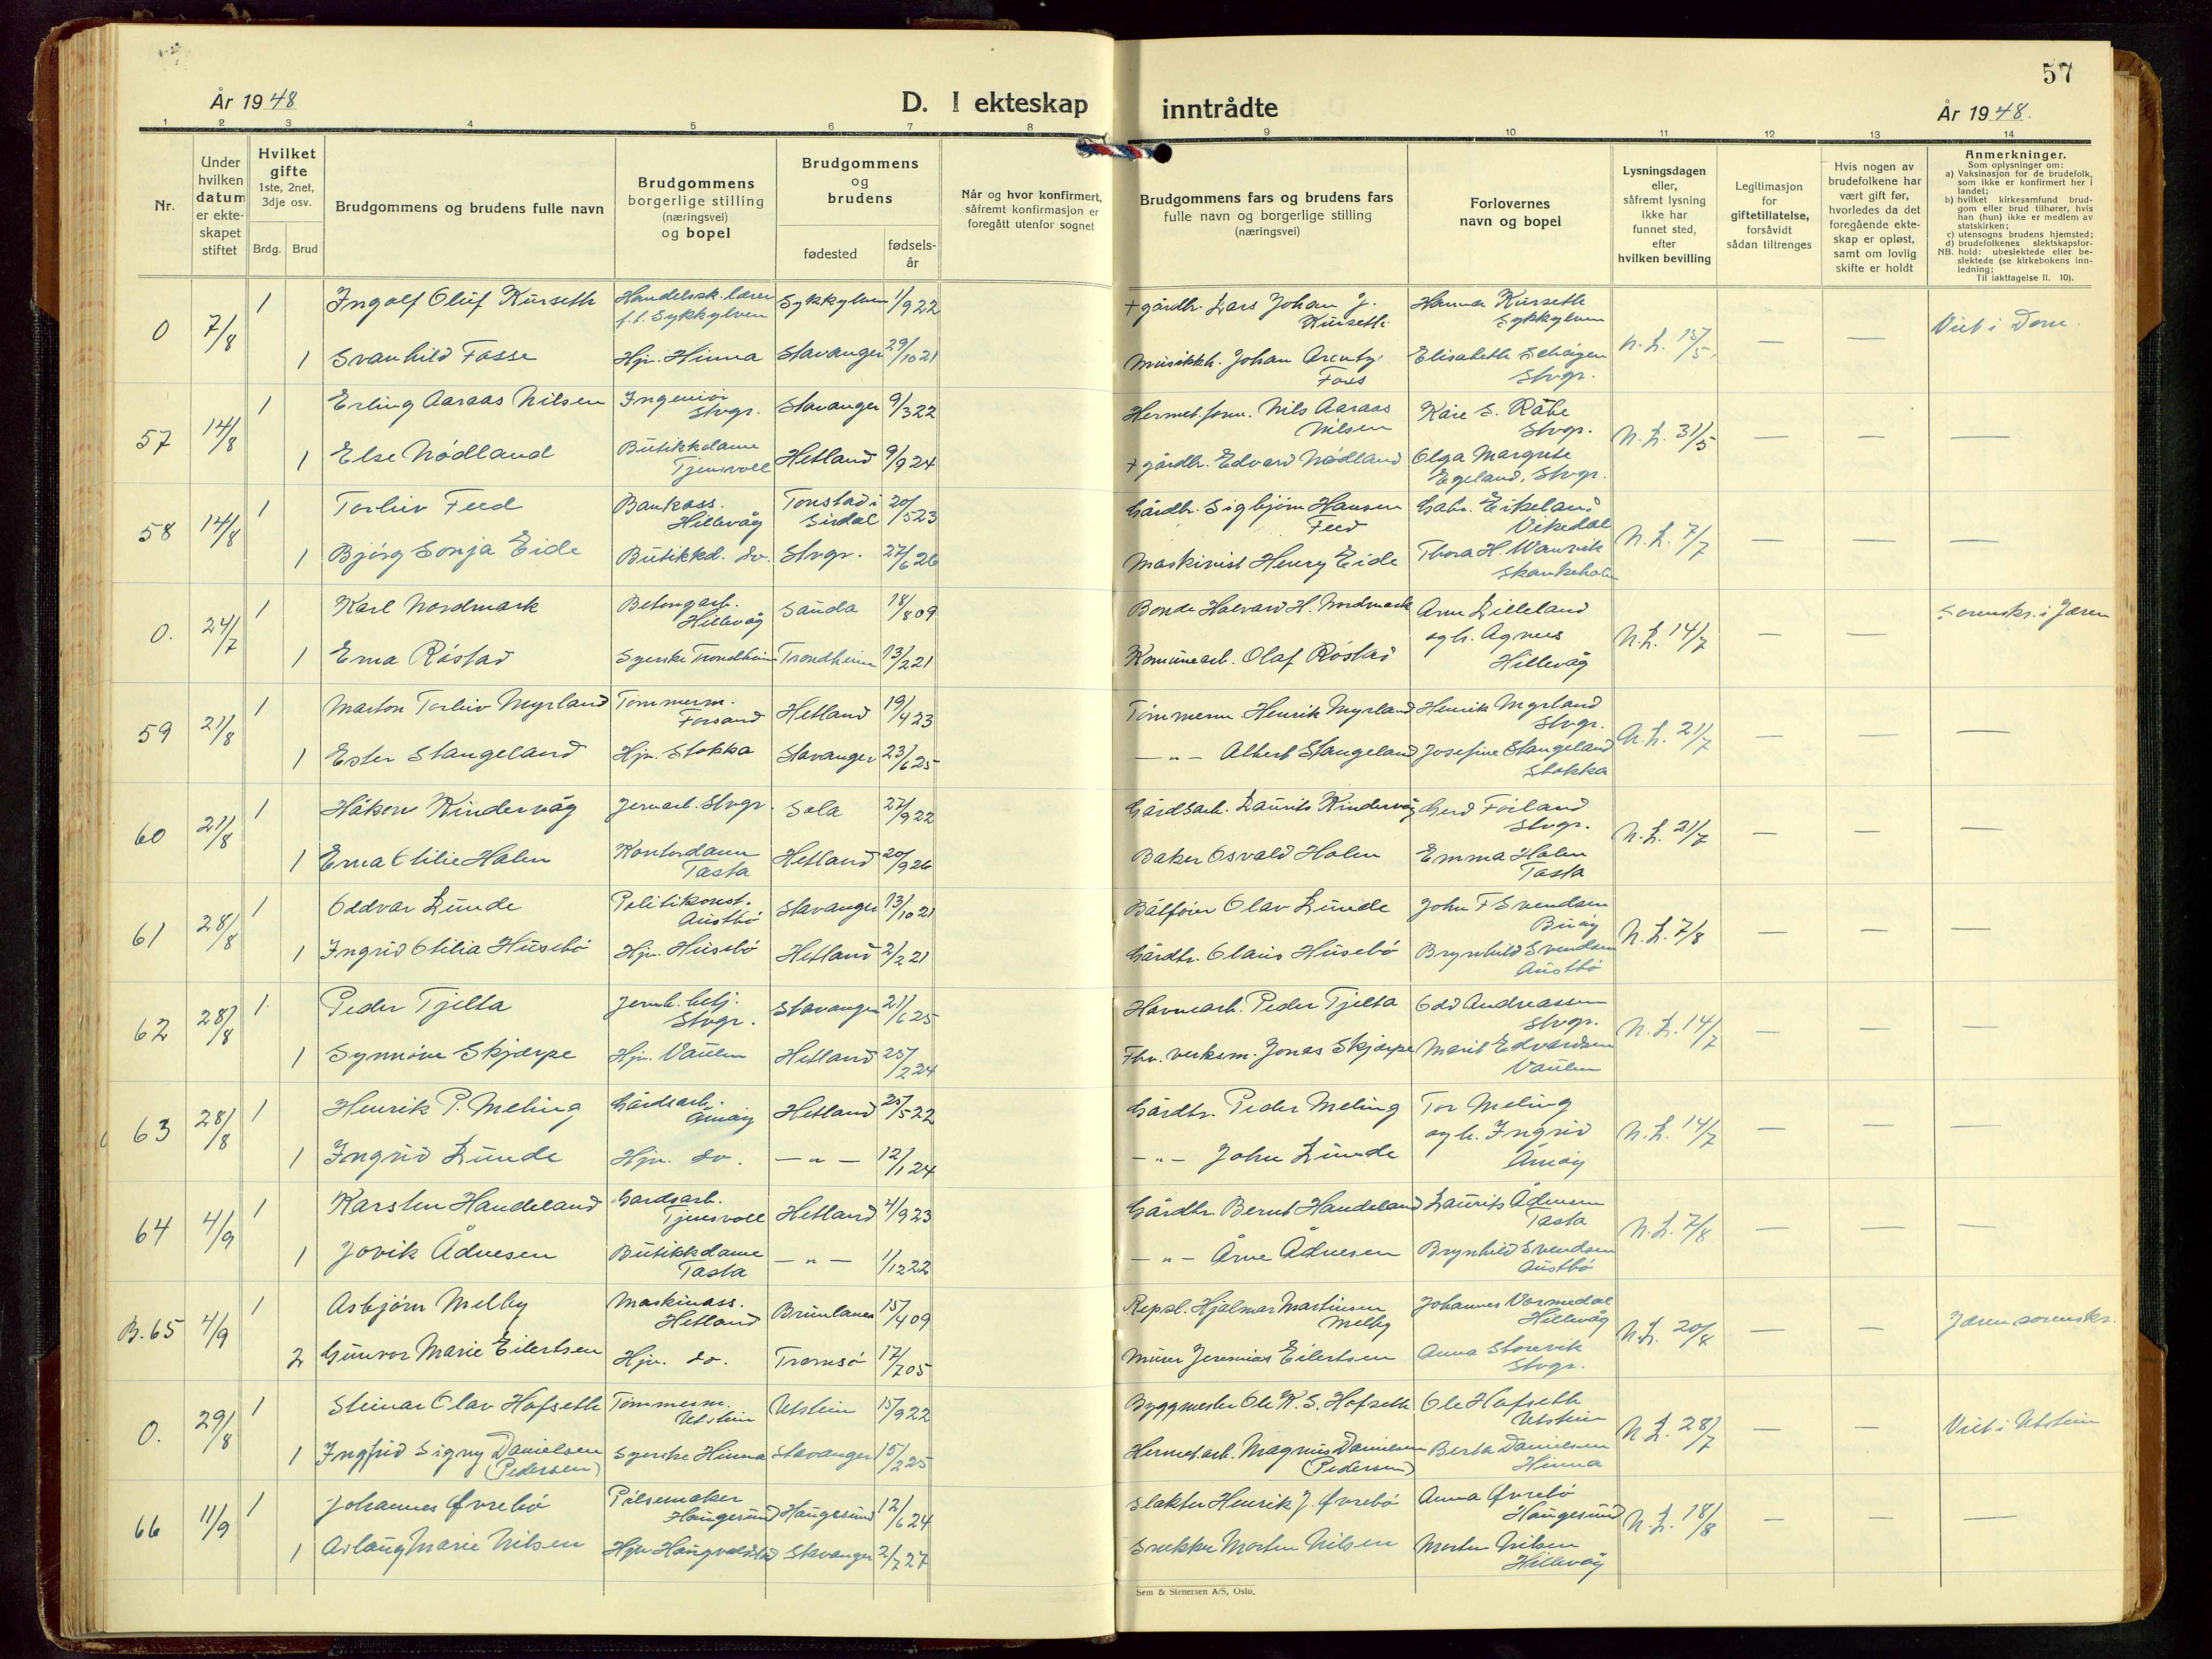 57
År 1948
D. I ekteskap
inntrådte
År 1948.
1 2 3 4 5 6 7 8 9 10 11 12 13 14
Nr.
Under hvilken datum er ekteskapet stiftet
Hvilket gifte
1ste, 2net, 3dje osv.
Brdg. Brud
Brudgommens og brudens fulle navn
Brudgommens borgerlige stilling (næringsvei) og bopel
Brudgommens og brudens
fødested
fødsels-år
Når og hvor konfirmert, såfremt konfirmasjon er foregått utenfor sognet
Brudgommens fars og brudens fars fulle navn og borgerlige stilling (næringsvei)
Forlovernes navn og bopel
Lysningsdagen eller, såfremt lysning ikke har funnet sted, efter hvilken bevilling
Legitimasjon for giftetillatelse, forsåvidt sådan tiltrenges
Hvis nogen av brudefolkene har vært gift før, hvorledes da det foregående ekteskap er opløst, samt om lovlig skifte er holdt
Anmerkninger.
Som oplysninger om:
a) Vaksinasjon for de brudefolk, som ikke er konfirmert her i landet;
b) hvilket kirkesamfund brudgom eller brud tilhører, hvis han (hun) ikke er medlem av statskirken;
c) utensogns brudens hjemsted;
d) brudefolkenes slektskapsforhold: ubeslektede eller beslektede (se kirkebokens innledning;
NB. Til iakttagelse ll. 10).
0 7/8 1 Ingolf Oluf Kurseth Handelssk.lærer f.t. Sykkylven Sykkylven 1/9 22 + gårdbr. Lars Johan J. Kurseth Hanna Kurseth Sykkylven N.L. 15/5 — — Viet i Dom.
1 Svanhild Fosse Hjv. Hinna Stavanger 29/10 21 Musikkh. Johan Arentz Foss Elisabeth Stvgr.
57 14/8 1 Erling Aaraas Nilsen Ingeniør Stvgr. Stavanger 9/3 22 Hermet.form. Nils Aaraas Nilsen Kåre S. Råbe Stvgr. N.L. 31/5 — — —
1 Else Nødland Butikkdame Tjensvoll Hetland 9/9 24 + gårdbr. Edvard Nødland Olga Margrete Egeland, Stvgr.
58 14/8 1 Torleiv Feed Bankass. Hillevåg Tonstad i Sirdal 20/5 23 Gårdbr. Sigbjørn Hansen Feed Gabr. Eikeland Vikedal N.L. 7/7 — — —
1 Bjørg Sonja Eide Butikkd. do. Stvgr. 27/6 26 Maskinist Henry Eide Thora H. Wanvik
0. 24/7 1 Karl Nordmark Betongarb. Hillevåg Sauda 18/8 09 Bonde Halvard H. Nordmark Arne Lilleland og h. Agnes Hillevåg N.L. 14/7 — — Sorenskr. i Jæren
1 Erna Røstad Syerske Trondheim Trondheim 13/2 21 Komunearb. Olaf Røstad
59 21/8 1 Marton Torleiv Myrland Tømmerm. Forsand Hetland 19/4 23 Tømmerm. Henrik Myrland Henrik Myrland Stvgr. N.L. 21/7 — — —
1 Ester Stangeland Hjv. Stokka Stavanger 23/6 25 —"— Albert Stangeland Josefine Stangeland Stokka
60 21/8 1 Håkon Kindervåg Jernarb. Stvgr. Sola 27/9 22 Gårdsarb. Laurits Kindervåg Gerd Førland Stvgr. N.L. 21/7 — — —
1 Erna Otilie Halen Kontordame Tasta Hetland 20/9 26 Baker Osvald Halen Emma Halen Tasta
61 28/8 1 Oddvar Lunde Politikonst. Austbø Stavanger 13/10 21 Båtfører Olav Lunde John F Svendsen Buøy N.L. 7/8 — — —
1 Ingrid Otilia Husebø Hjv. Husebø Hetland 2/2 21 Gårdbr. Olaus Husebø Brynhild Svendsen Austbø
62 28/8 1. Peder Tjelta Jernb. betj. Stvgr. Stavanger 21/6 25 Havnearb. Peder Tjelta Odd Andreassen Stvgr. N.L. 14/7 — — —
1 Synnøve Skjærpe Hjv. Vaulen Hetland 25/2 24 Fhv. verksm. Jonas Skjærpe Marit Edvardsen Vaulen
63 28/8 1 Henrik P. Meling Gårdsarb. Åmøy Hetland 25/5 22 Gårdbr. Peder Meling Tor Meling og h. Ingrid Åmøy N.L. 14/7 — — —
1 Ingrid Lunde Hjv. do. —"— 12/1 24 —"— John Lunde
64 4/9 1 Karsten Handeland Gardsarb. Tjensvoll Hetland 4/9 23 Gårdbr. Bernt Handeland Laurits Ådnesen Tasta N.L. 7/8 — — —
1 Jovik Ådnesen Butikkdame Tasta —"— 1/12 22 —"— Arne Ådnesen Brynhild Svendsen Austbø
B. 65 4/9 1 Asbjørn Melby Maskinass. Hetland Brunlanes 15/4 09 Repsl. Hjalmar Martinsen Melby Johannes Vormedal Hillevåg N.L. 20/8 — — Jæren sorenskr.
2 Gunvor Marie Eilertsen Hjv. do. Tromsø 17/7 05 Murer Jeremias Eilertsen Anna Storevik Stvgr.
0. 29/8 1 Steinar Olav Hofseth Tømmerm. Utstein Utstein 15/9 22 Byggmester Ole K. S. Hofseth Ole Hofseth Utstein N.L. 28/7 — — Viet i Utstein
1 Ingfrid Signy Danielsen (Pedersen) Syerske Hinna Stavanger 15/2 25 Hermet.arb. Magnus Danielsen (Pedersen) Berta Danielsen Hinna
66 11/9 1 Johannes Øvrebø Pølsemaker Haugesund Haugesund 12/6 24 Slakter Henrik J. Øvrebø Anna Øvrebø Haugesund N.L. 18/8 — — —
1 Aslaug Marie Nilsen Hjv. Haugvaldstad Stavanger 2/7 27 Snekker Morten Nilsen Morten Nilsen Hillevåg
Sem & Stenersen A/S, Oslo.